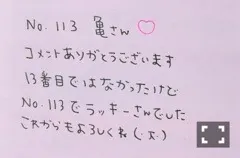 No. 113 亀さん♡
コメントありがとうございます
13番目ではなかったけど
No. 113でラッキーさんでした
これからもよろしくね (:ᴈ:)